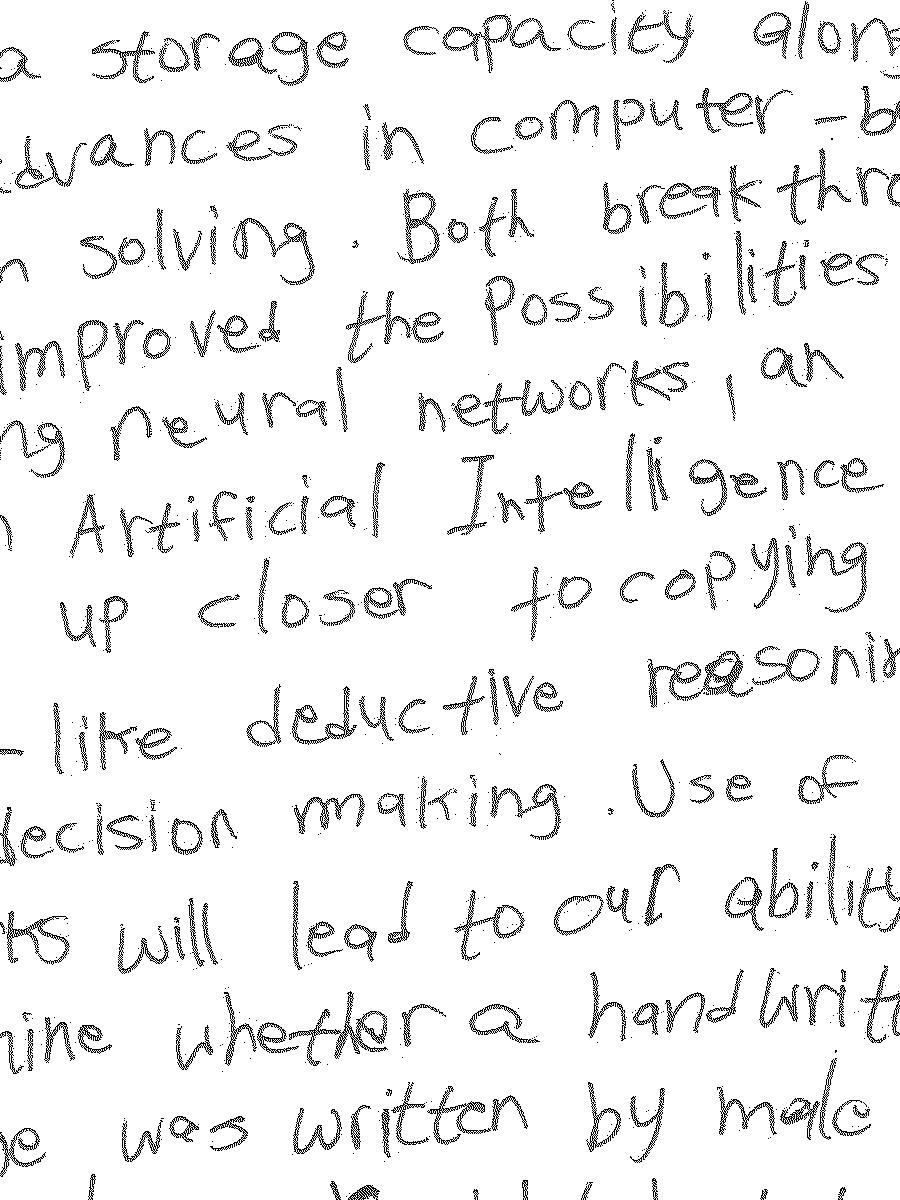 a storage capacity along
advances in computer-ba
n solving. Both breakthro
improved the Possibilities
ng neural networks, an
n Artificial Intelligence
up closer to copying
- like deductive reasonin
decision making. Use of
ks will lead to our ability
mine whether a handwritt
ge was written by male